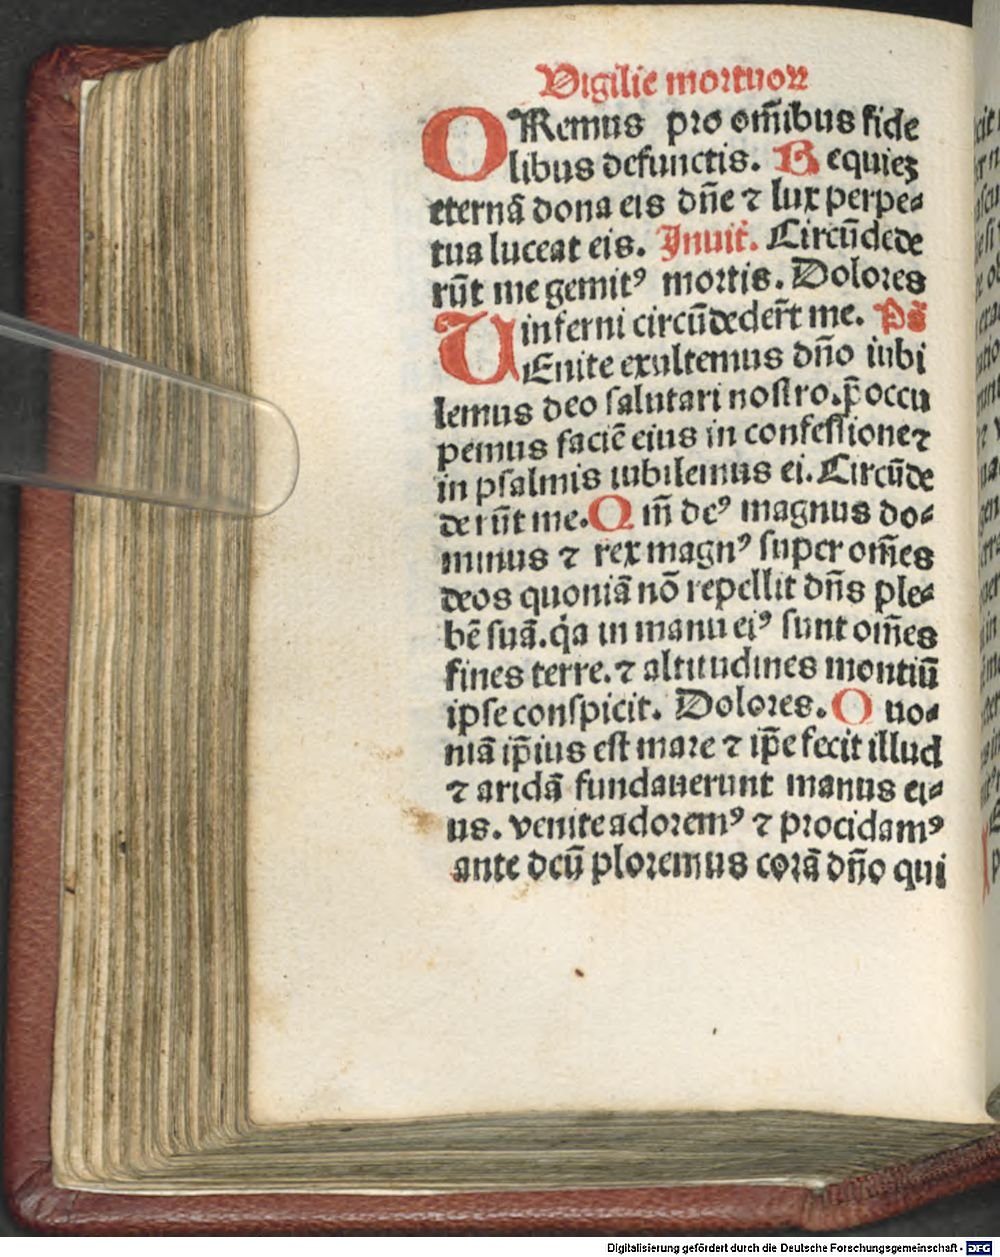 Vigilie mortuoꝝ
ORemus pro om̄ibus fide
libus defunctis. Requiez
eternā dona eis dn̄e ⁊ lux perpe⸗
tua luceat eis. Inuit̄. Circūdede
rūt me gemitꝰ mortis. Dolores
inferni circūdeder̄t me. Ps̄
UEnite exultemus dn̄o iubi
lemus deo salutari nostro. p̄occu
pemus faciē eius in confessione ⁊
in psalmis iubilemus ei. Circūde
derūt me. Qm̄ deꝰ magnus do⸗
minus ⁊ rex magnꝰ super om̄es
deos quoniā nō repellit dn̄s ple⸗
bē suā. q̇a in manu eiꝰ sunt om̄es
fines terre. ⁊ altitudines montiū
ipse conspicit. Dolores. Quo⸗
niā ip̄ius est mare ⁊ ip̄e fecit illud
⁊ aridā fundauerunt manus ei⸗
us. venite adoremꝰ ⁊ procidamꝰ
ante deū ploremus corā dn̄o qui
Digitalisierung gefördert durch die Deutsche Forschungsgemeinschaft - DFG